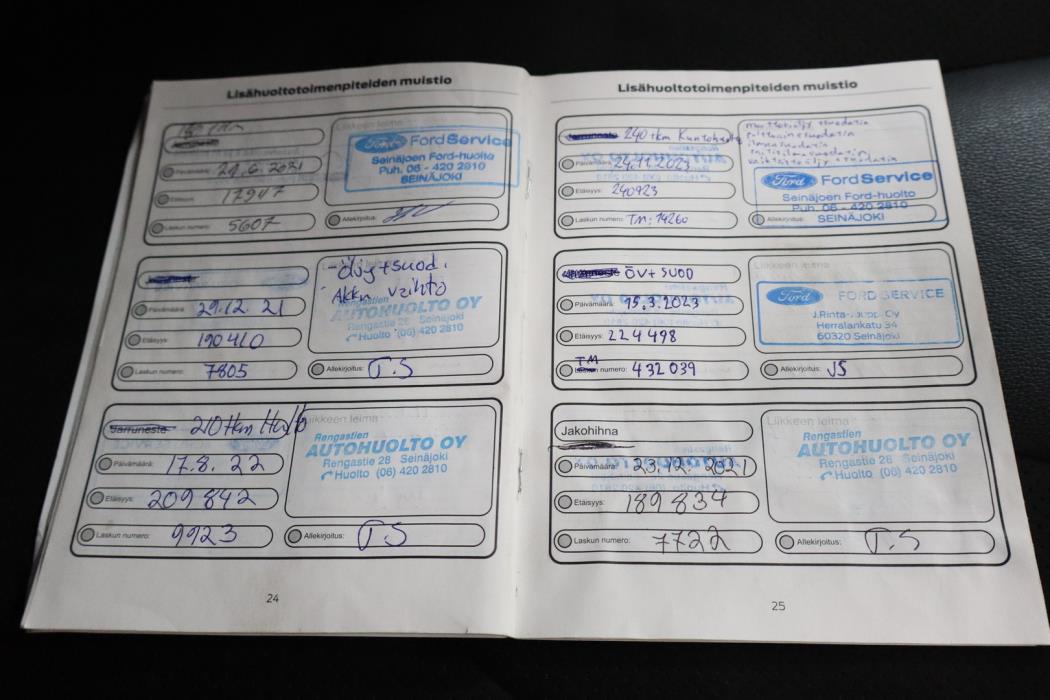 Lisähuoltotoimenpiteiden muistio
Liikkeen leima
Ford FordService
Seinäjoen Ford-huolto
Puh. 06 - 420 2810
SEINÄJOKI
Päivämäärä:
Etäisyys:
Laskun numero: 5607
Allekirjoitus:
-Öljy+suod.
Akku vaihto
Rengastien
AUTOHUOLTO OY
Rengastie 28 Seinäjoki
Huolto (06) 420 2810
Päivämäärä: 29.12.21
Etäisyys: 190410
Laskun numero: 7805
Allekirjoitus: T.S
Jarruneste 210tkm Huolto
Liikkeen leima
Rengastien
AUTOHUOLTO OY
Rengastie 28 Seinäjoki
Huolto (06) 420 2810
Päivämäärä: 17.8.22
Etäisyys: 209842
Laskun numero: 9923
Allekirjoitus: T.S
24
Lisähuoltotoimenpiteiden muistio
Jarruneste 240 tkm
Päivämäärä: 24.11.2023
Etäisyys: 240923
Laskun numero: TM: 14260
Ford FordService
Seinäjoen Ford-huolto
Puh. 06 - 420 2810
SEINÄJOKI
Allekirjoitus:
ÖV+ SUOD
Liikkeen leima
Ford FORD SERVICE
J.Rinta-Jouppi Oy
Herralankatu 34
60320 Seinäjoki
Päivämäärä: 15.3.2023
Etäisyys: 224498
TM
numero: 432039
Allekirjoitus: JS
Jakohihna
Liikkeen leima
Rengastien
AUTOHUOLTO OY
Rengastie 28 Seinäjoki
Huolto (06) 420 2810
Päivämäärä: 23.12.2021
Etäisyys: 189834
Laskun numero: 7722
Allekirjoitus: T.S
25